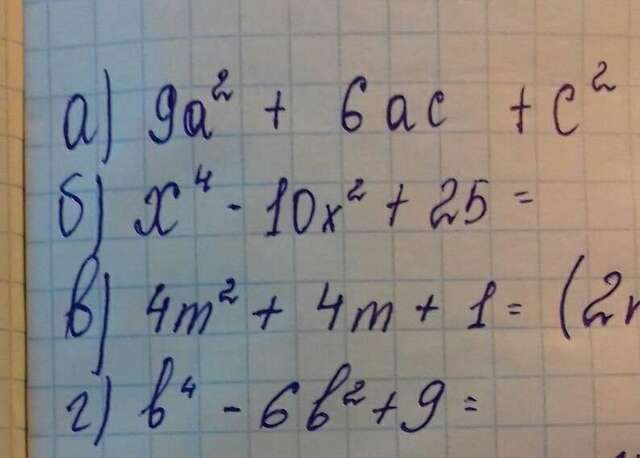 а) 9a² + 6ac + c²
б) x⁴ - 10x² + 25 =
в) 4m² + 4m + 1 = (2
г) b⁴ - 6b² + 9 =